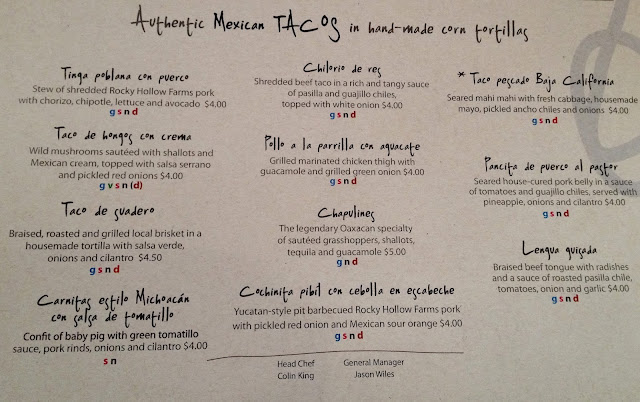 Authentic Mexican TACOS in hand-made corn tortillas
Tinga poblana con puerco
Stew of shredded Rocky Hollow Farms pork
with chorizo, chipotle, lettuce and avocado $4.00
g s n d
Taco de hongos con crema
Wild mushrooms sautéed with shallots and
Mexican cream, topped with salsa serrano
and pickled red onions $4.00
g v s n (d)
Taco de suadero
Braised, roasted and grilled local brisket in a
housemade tortilla with salsa verde,
onions and cilantro $4.50
g s n d
Carnitas estilo Michoacán
con salsa de tomatillo
Confit of baby pig with green tomatillo
sauce, pork rinds, onions and cilantro $4.00
s n
Chilorio de res
Shredded beef taco in a rich and tangy sauce
of pasilla and guajillo chiles,
topped with white onion $4.00
g s n d
Pollo a la parrilla con aguacate
Grilled marinated chicken thigh with
guacamole and grilled green onion $4.00
g s n d
Chapulines
The legendary Oaxacan specialty
of sautéed grasshoppers, shallots,
tequila and guacamole $5.00
g n d
Cochinita pibil con cebolla en escabeche
Yucatan-style pit barbecued Rocky Hollow Farms pork
with pickled red onion and Mexican sour orange $4.00
g s n d
* Taco pescado Baja California
Seared mahi mahi with fresh cabbage, housemade
mayo, pickled ancho chiles and onions $4.00
g s n d
Pancita de puerco al pastor
Seared house-cured pork belly in a sauce
of tomatoes and guajillo chiles, served with
pineapple, onions and cilantro $4.00
g s n d
Lengua guisada
Braised beef tongue with radishes
and a sauce of roasted pasilla chile,
tomatoes, onion and garlic $4.00
g s n d
Head Chef
Colin King
General Manager
Jason Wiles